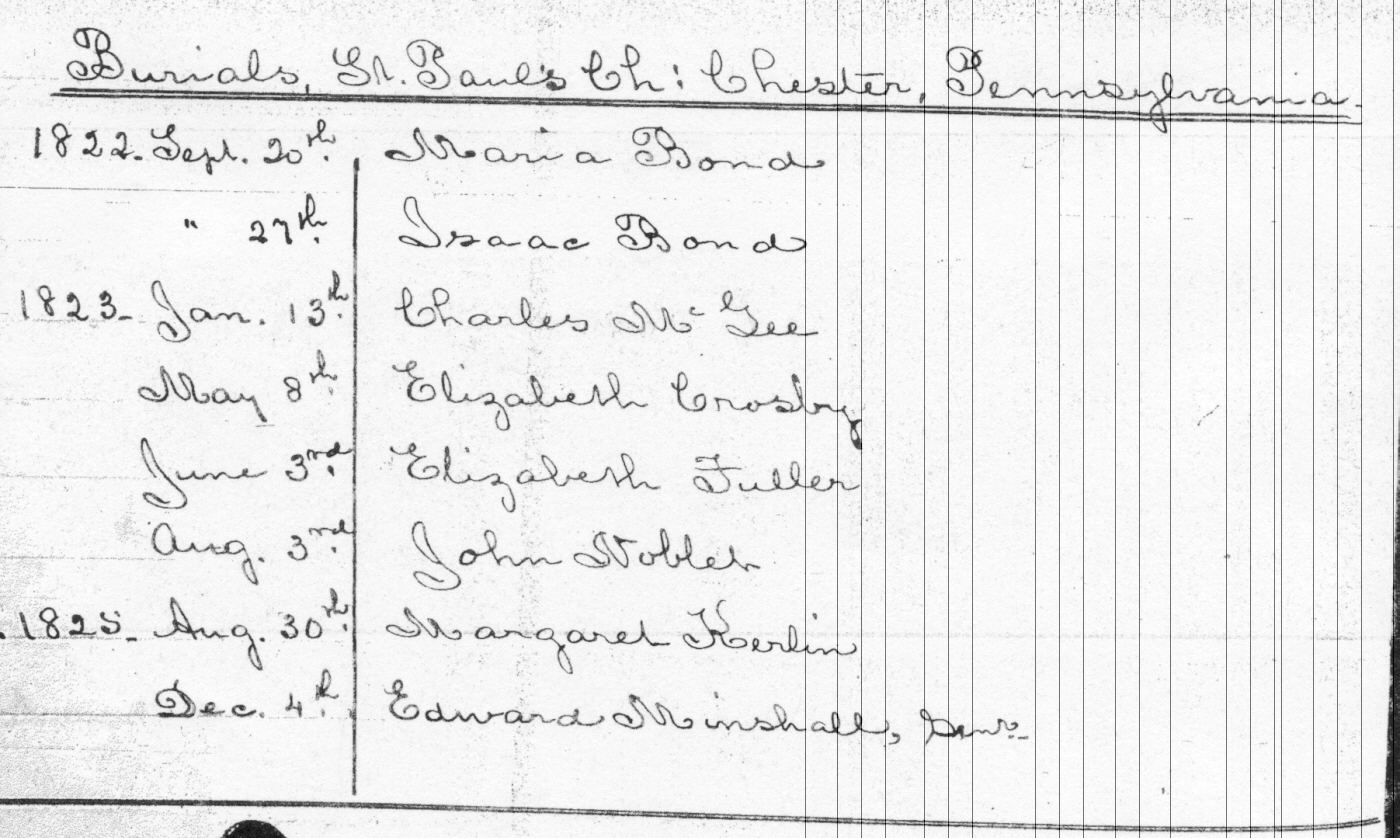 Burials, St. Paul's Ch: Chester, Pennsylvania.
1822. Sept. 20th. Maria Bond
" 27th. Isaac Bond
1823. Jan. 13th. Charles McGee
May 8th. Elizabeth Crosby
June 3rd. Elizabeth Fuller
Aug. 3rd. John Noblet
1825. Aug. 30th. Margaret Kerlin
Dec. 4th. Edward Minshall, Senr.